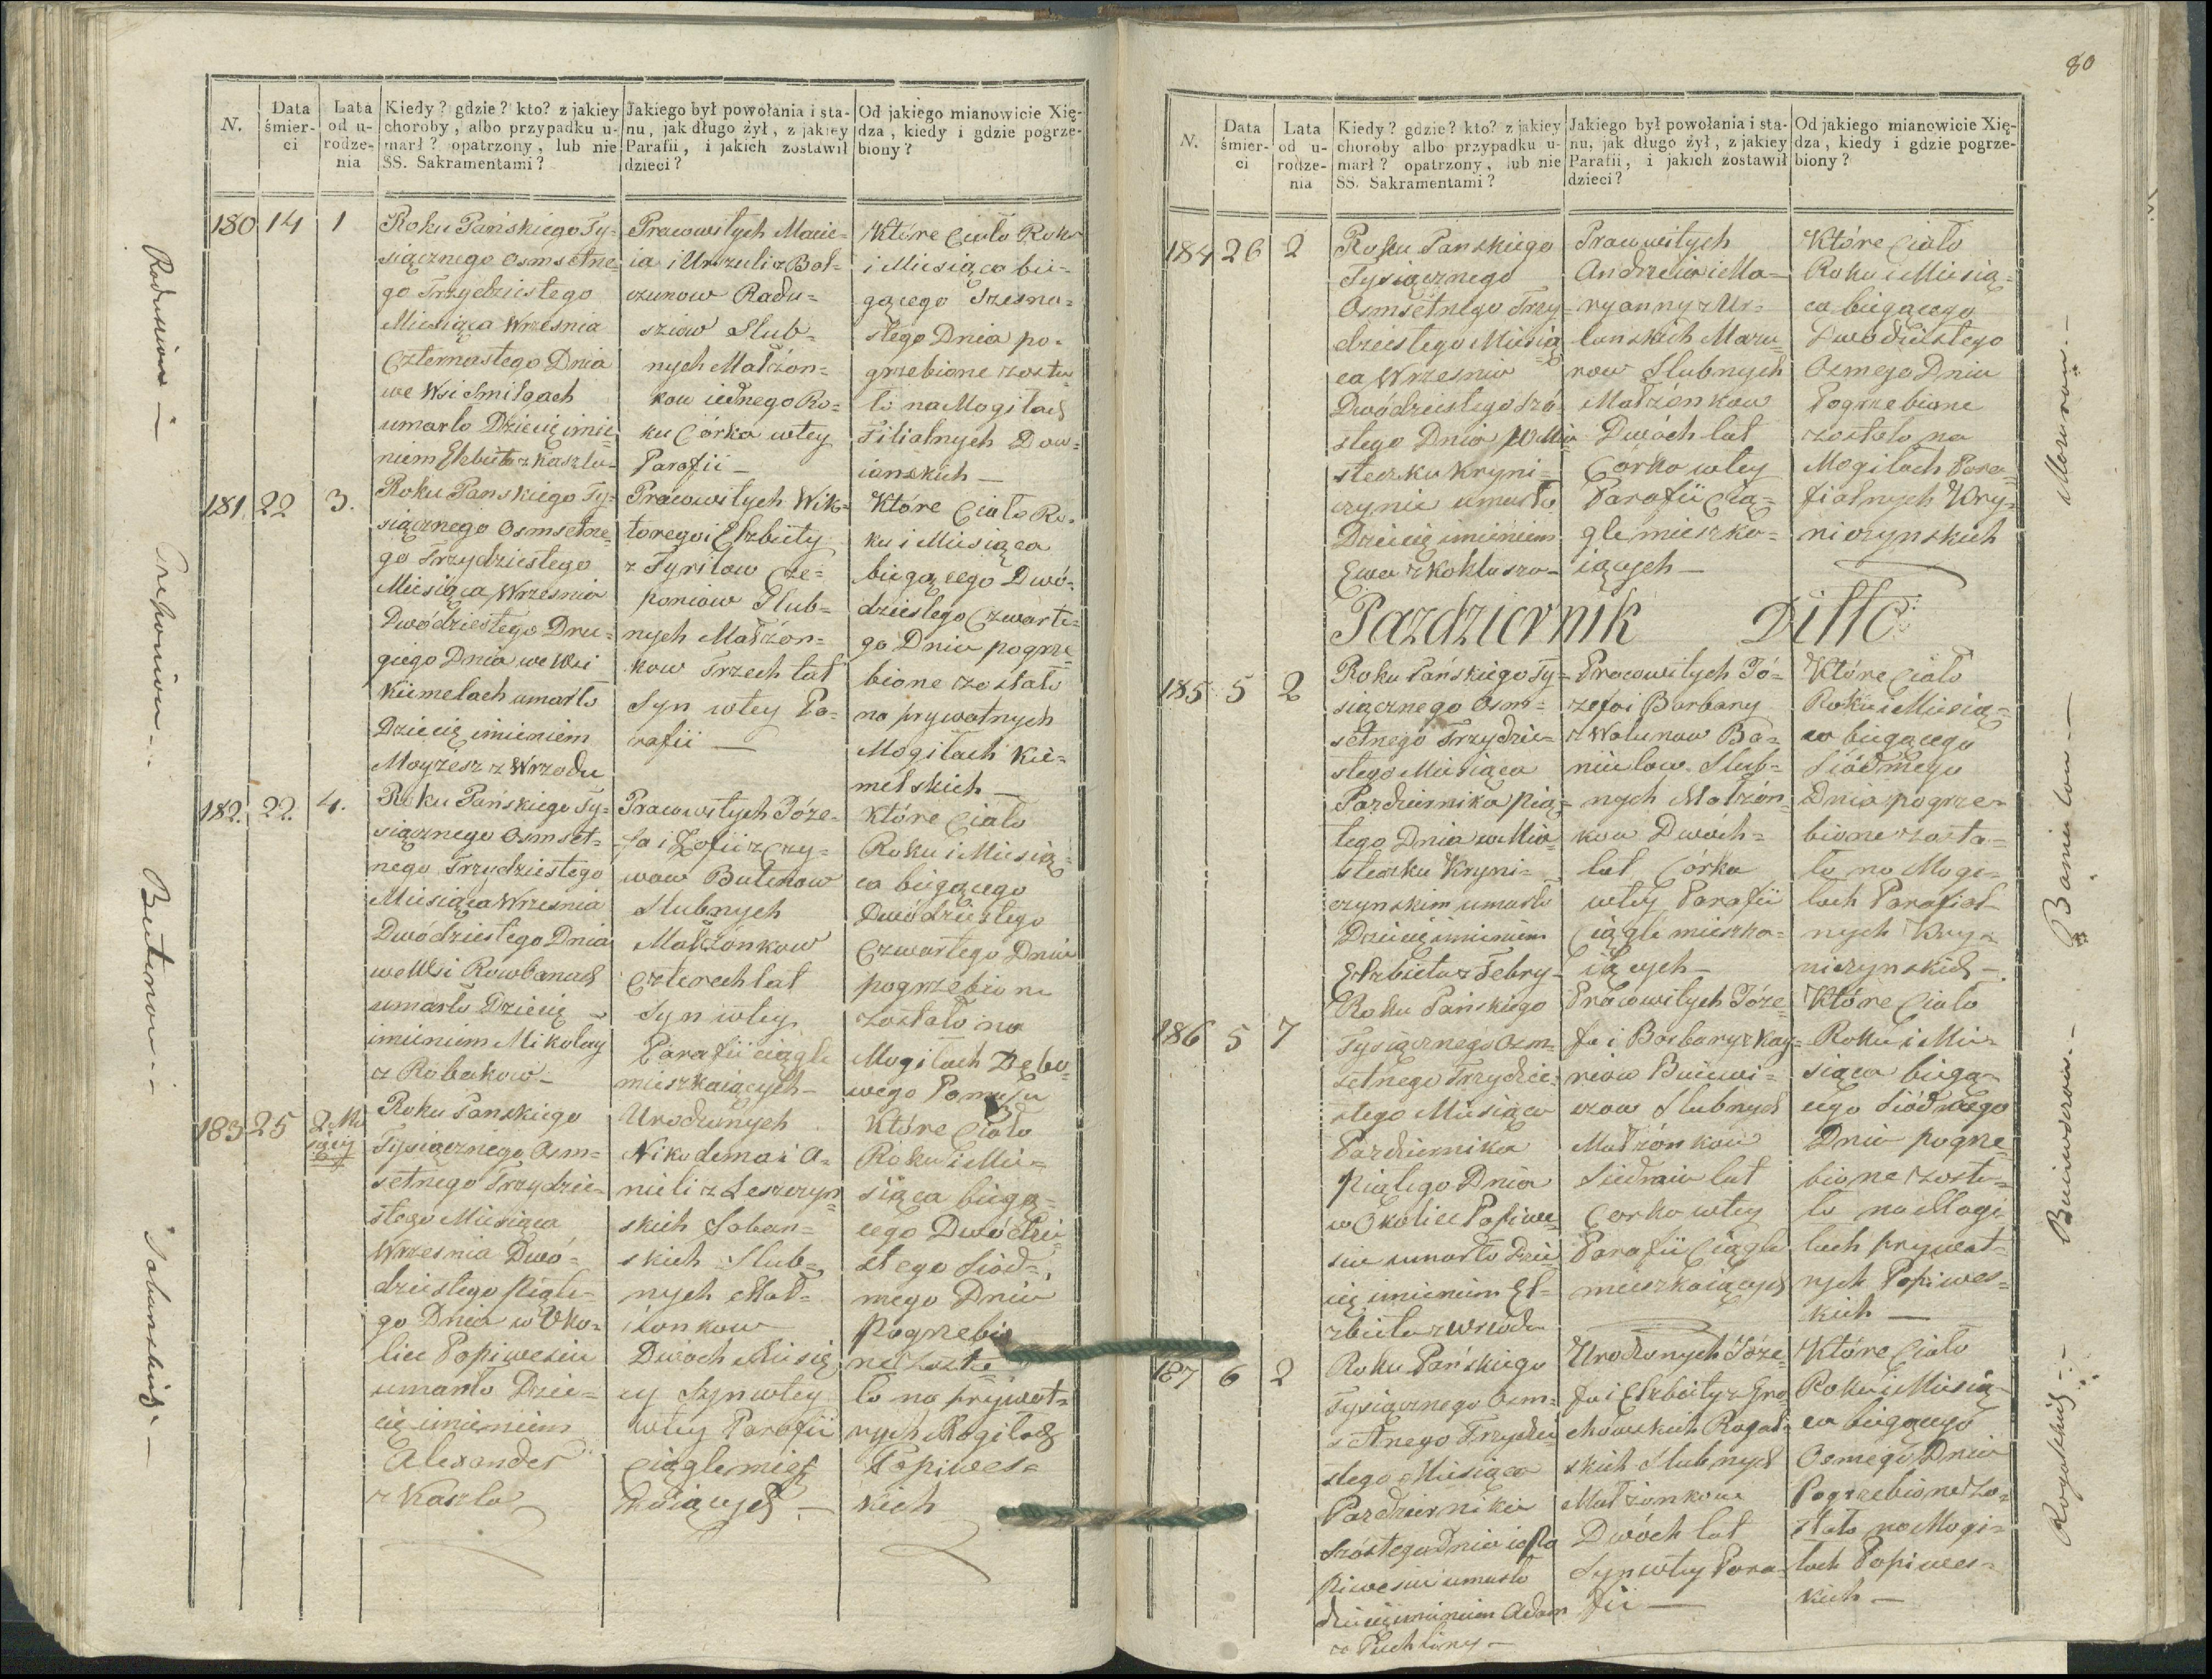 N.
Data śmier-
ci
Lata
od u-
rodze-
nia
Kiedy? gdzie? kto? z jakiey
choroby, albo przypadku u-
marł? opatrzony, lub nie
SS. Sakramentami?
Jakiego był powołania i sta-
nu, jak długo żył, z jakiey
Parafii, i jakich zostawił
dzieci?
Od jakiego mianowicie Xię-
dza, kiedy i gdzie pogrze-
biony?
180
14
1
Roku Pańskiego Ty-
siącznego Osmsetne-
go Trzydziestego
Miesiąca Wrzesnia
Czternastego Dnia
we Wsi
umarło Dziecię imie-
niem Elżbieta z Kaszlu
Pracowitych Macie-
ia i Urszuli z Boł-
czunow Radu-
sziow Slub-
nych Małżon-
kow iednego Ro-
ku Córka w tey
Parafii —
Które Ciało Roku
i Miesiąca bie-
gącego Szesna-
stego Dnia po-
grzebione zosta-
ło na Mogiłach
Filialnych Dow-
ianskich —
181
22
3.
Roku Panskiego Ty-
siącznego Osmsetne-
go Trzydziestego
Miesiąca Wrzesnia
Dwódziestego Dru-
giego Dnia we Wsi
Kiemelach umarło
Dziecię imieniem
Moyzesz z Wrzodu
Pracowitych Wik-
torego i Elżbiety
z Tyriłow Cze-
poniow Slub-
nych Małżon-
kow Trzech lat
Syn w tey Pa-
rafii —
Które Ciało Ro-
ku i Miesiąca
biegącego Dwó-
dziestego Czwarte-
go Dnia pogrze-
bione zostało
na prywatnych
Mogiłach Kie-
melskich —
182.
22
4.
Roku Pańskiego Ty-
siącznego Osmset-
nego Trzydziestego
Miesiąca Wrzesnia
Dwódziestego Dnia
we Wsi Rowbanach
umarło Dziecię
imieniem Mikołay
z Robakow —
Pracowitych Józe-
fa i Zofii z Czy-
wow Butenow
Slubnych
Małżonkow
Czterech lat
Syn w tey
Parafii ciągle
mieszkaiących —
Które Ciało
Roku i Miesią-
ca biegącego
Dwódziestego
Czwartego Dnia
pogrzebione
zostało na
Mogiłach Dębo-
wego
183
25
2 Mie
sięcy
Roku Panskiego
Tysiącznego Osm-
setnego Trzydzie-
stego Miesiąca
Wrzesnia Dwó-
dziestego Piąte-
go Dnia w Oko-
licy Popiwesiu
umarło Dzie-
cię imieniem
Alexander
z Kaszlo
Urodzonych
Nikodema i A-
nieli z Leszczyn
skich Soban-
skich Slub-
nych Mał-
żonkow
Dwóch Miesię
cy Syn w tey
w tey Parafii
ciągle miesz
kaiących —
Które Ciało
Roku i Mie-
siąca biegą-
cego Dwódzie
stego Siód-
mego Dnia
Pogrzebio
ne zosta
ło na prywat-
nych Mogiłach
Popiwes-
kich
Radusziow —
Czeponiow —
Butenow —
Sobanskich —
80
N.
Data
śmier-
ci
Lata
od u-
rodze-
nia
Kiedy? gdzie? kto? z jakiey
choroby albo przypadku u-
marł? opatrzony, lub nie
SS. Sakramentami?
Jakiego był powołania i sta-
nu, jak długo żył, z jakiey
Parafii, i jakich zostawił
dzieci?
Od jakiego mianowicie Xię-
dza, kiedy i gdzie pogrze-
biony?
184
26
2
Roku Panskiego
Tysiącznego
Osmsetnego Trzy-
dziestego Miesią
ca Wrzesnia
Dwódziestego Szó
stego Dnia w Mia
steczku Kryni-
czynie umarło
Dziecię imieniem
Ewa z Kokluszo —
Pracowitych
Andrzeia i Ma-
ryanny z Ur-
banskich Mazu-
row Slubnych
Małżonkow
Dwóch lat
Córka w tey
Parafii Cią-
gle mieszka-
iących —
Które Ciało
Roku i Miesią-
ca biegącego
Dwodziestego
Osmego Dnia
Pogrzebione
zostało na
Mogiłach Para-
fialnych Kry-
niczynskich
Pazdziernik Ditto
185
5
2
Roku Pańskiego Ty-
siącznego Osm-
setnego Trzydzie-
stego Miesiąca
Pazdziernika Pią-
tego Dnia w Mia-
steczku Kryni-
czynskim umarło
Dziecię imieniem
Elżbieta z Febry —
Pracowitych Jó-
zefa i Barbary
z Wołunow Ba-
niułow Slub-
nych Małżon-
kow Dwóch-
lat Córka
w tey Parafii
Ciągle mieszka-
iących —
Które Ciało
Roku i Miesią-
ca biegącego
Siódmego
Dnia pogrze-
bione zosta-
ło na Mogi-
łach Parafial
nych Kry-
niczynskich —
186
5
7
Roku Pańskiego
Tysiącznego Osm-
setnego Trzydzie-
stego Miesiąca
Pazdziernika
Piątego Dnia
w Okolicy Popiwe-
siu umarło Dzie
cię imieniem El-
żbieta z Wrzodu
Pracowitych Józe-
fa i Barbary z Kay-
riow Buiewi-
czow Slubnych
Małżonkow
Siedmiu lat
Corka w tey
Parafii Ciągle
mieszkaiących
Które Ciało
Roku i Mie-
siąca biegą-
cego Siódmego
Dnia pogrze-
bione zosta-
ło na Mogi
łach prywat-
nych Popiwes-
kich —
187
6
2
Roku Pańskiego
Tysiącznego Osm-
setnego Trzydzie
stego Miesiąca
Pazdziernika
Szóstego Dnia w Po
piwesiu umarło
dziecię imieniem Adam
z Puchliny —
Urodzonych Józe-
fa i Elżbiety z Gro
chowskich Rogal-
skich Slubnych
Małżonkow
Dwóch lat
Syn w tey Para-
fii —
Które Ciało
Roku i Miesią-
ca biegącego
Osmego Dnia
Pogrzebione zo-
stało na Mogi-
łach Popiwes-
kich —
Mazurow —
Baniułow —
Buiewiczow —
Rogalskich —